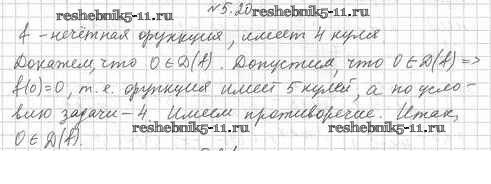 reshebnik5-11.ru №5.20 reshebnik5-11.ru
f - нечётная функция, имеет 4 нуля
Докажем, что 0∈D(f). Допустим, что 0∈D(f) =>
f(0)=0, т.е. функция имеет 5 нулей, а по усло-
вию задачи - 4. Имеем противоречие. Итак,
reshebnik5-11.ru reshebnik5-11.ru
0∈D(f).